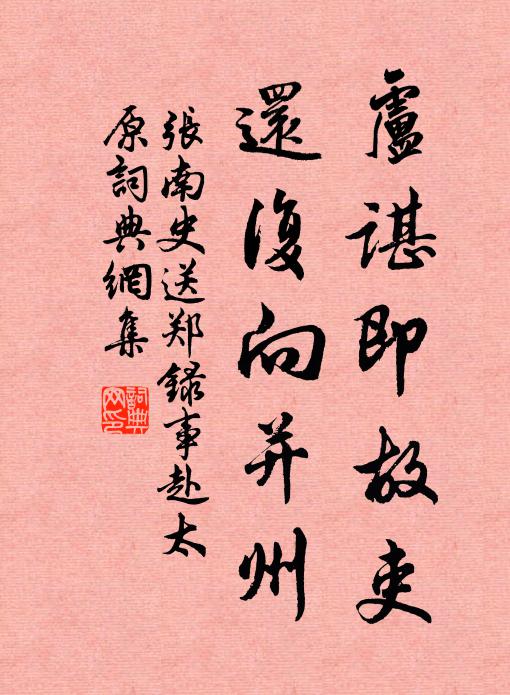 盧諶即故吏
還復向并州
張南史送郑錄事赴太
原詞典網集
詞典
网印